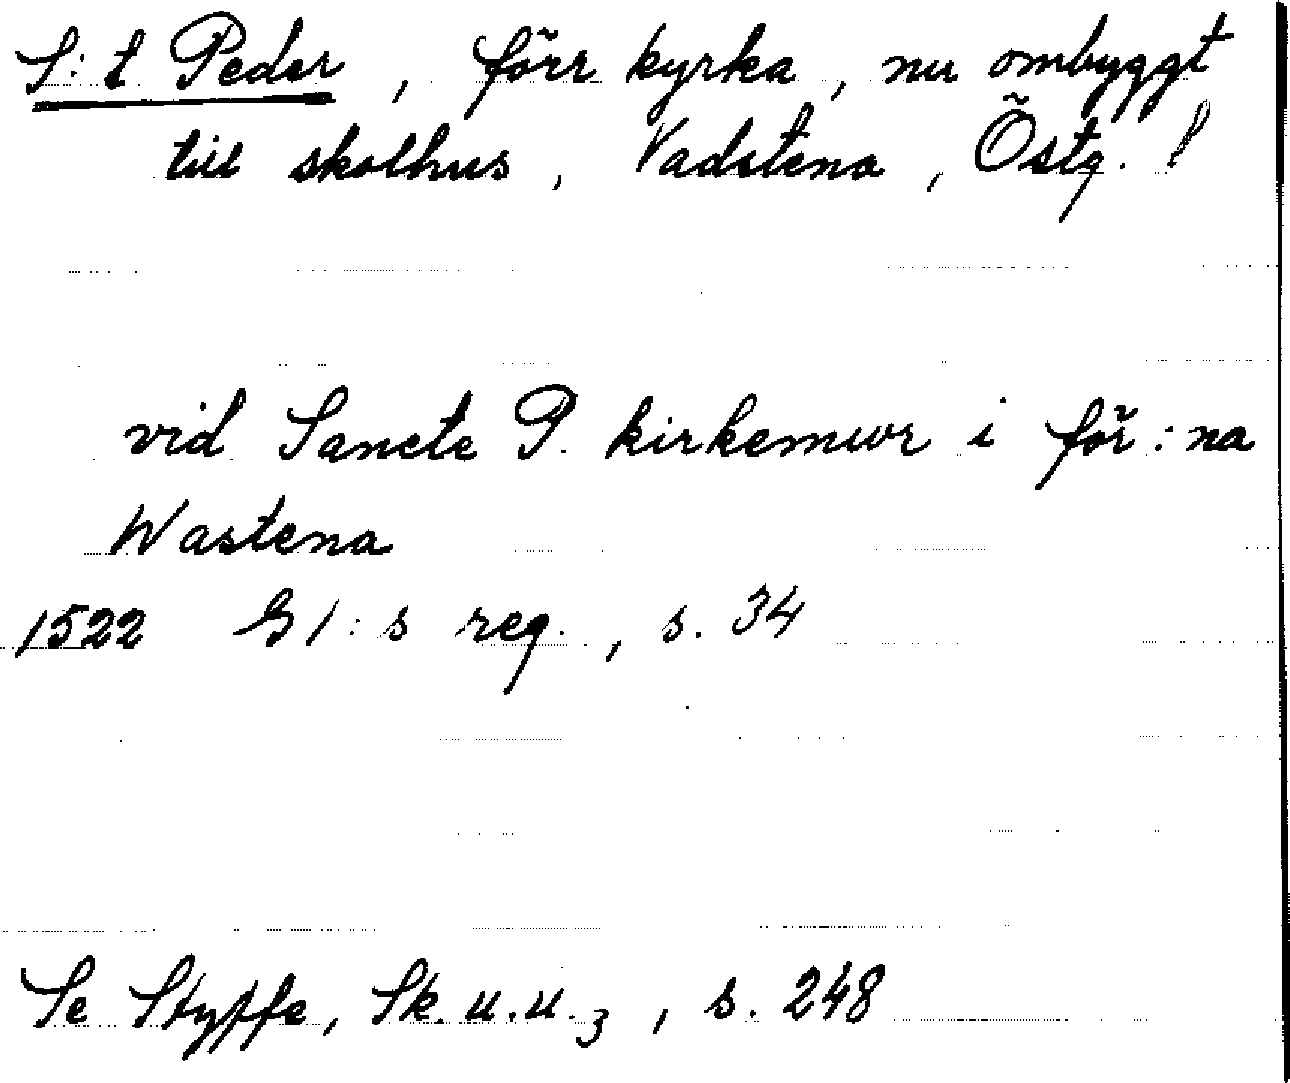 S:t Peder, förr kyrka, nu ombyggt
till skolhus, Vadstena, Östg. l
vid Sancte P. kirkemwr i för:na
Wastena
1522 G I:s reg., s. 34
Se Styffe, Sk.u.u.3, s. 248